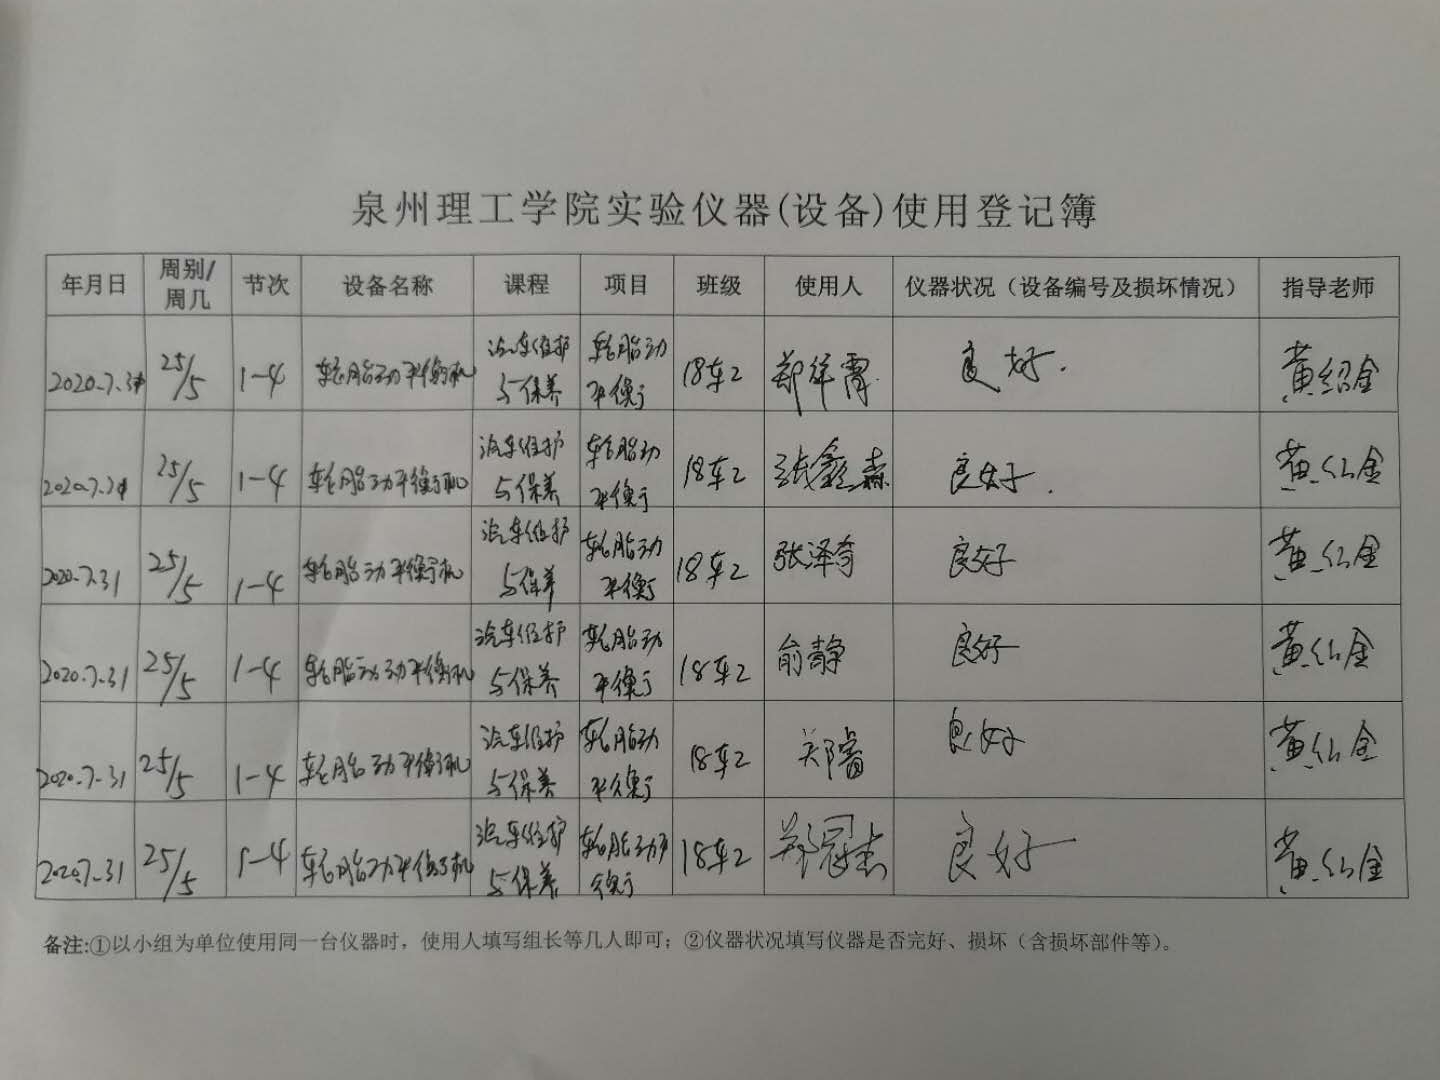 泉州理工学院实验仪器(设备)使用登记簿
年月日 周别/周几 节次 设备名称 课程 项目 班级 使用人 仪器状况（设备编号及损坏情况） 指导老师
2020.7.31 25/5 1-4 轮胎动平衡机 汽车维护与保养 轮胎动平衡 18车2 良好. 黄绍金
2020.7.31 25/5 1-4 轮胎动平衡机 汽车维护与保养 轮胎动平衡 18车2 张鑫森 良好. 黄绍金
2020.7.31 25/5 1-4 轮胎动平衡机 汽车维护与保养 轮胎动平衡 18车2 张泽奇 良好 黄绍金
2020.7.31 25/5 1-4 轮胎动平衡机 汽车维护与保养 轮胎动平衡 18车2 俞静 良好 黄绍金
2020.7.31 25/5 1-4 轮胎动平衡机 汽车维护与保养 轮胎动平衡 18车2 郑睿 良好 黄绍金
2020.7.31 25/5 1-4 轮胎动平衡机 汽车维护与保养 轮胎动平衡 18车2 郑冠杰 良好 黄绍金
备注:①以小组为单位使用同一台仪器时，使用人填写组长等几人即可；②仪器状况填写仪器是否完好、损坏（含损坏部件等）。